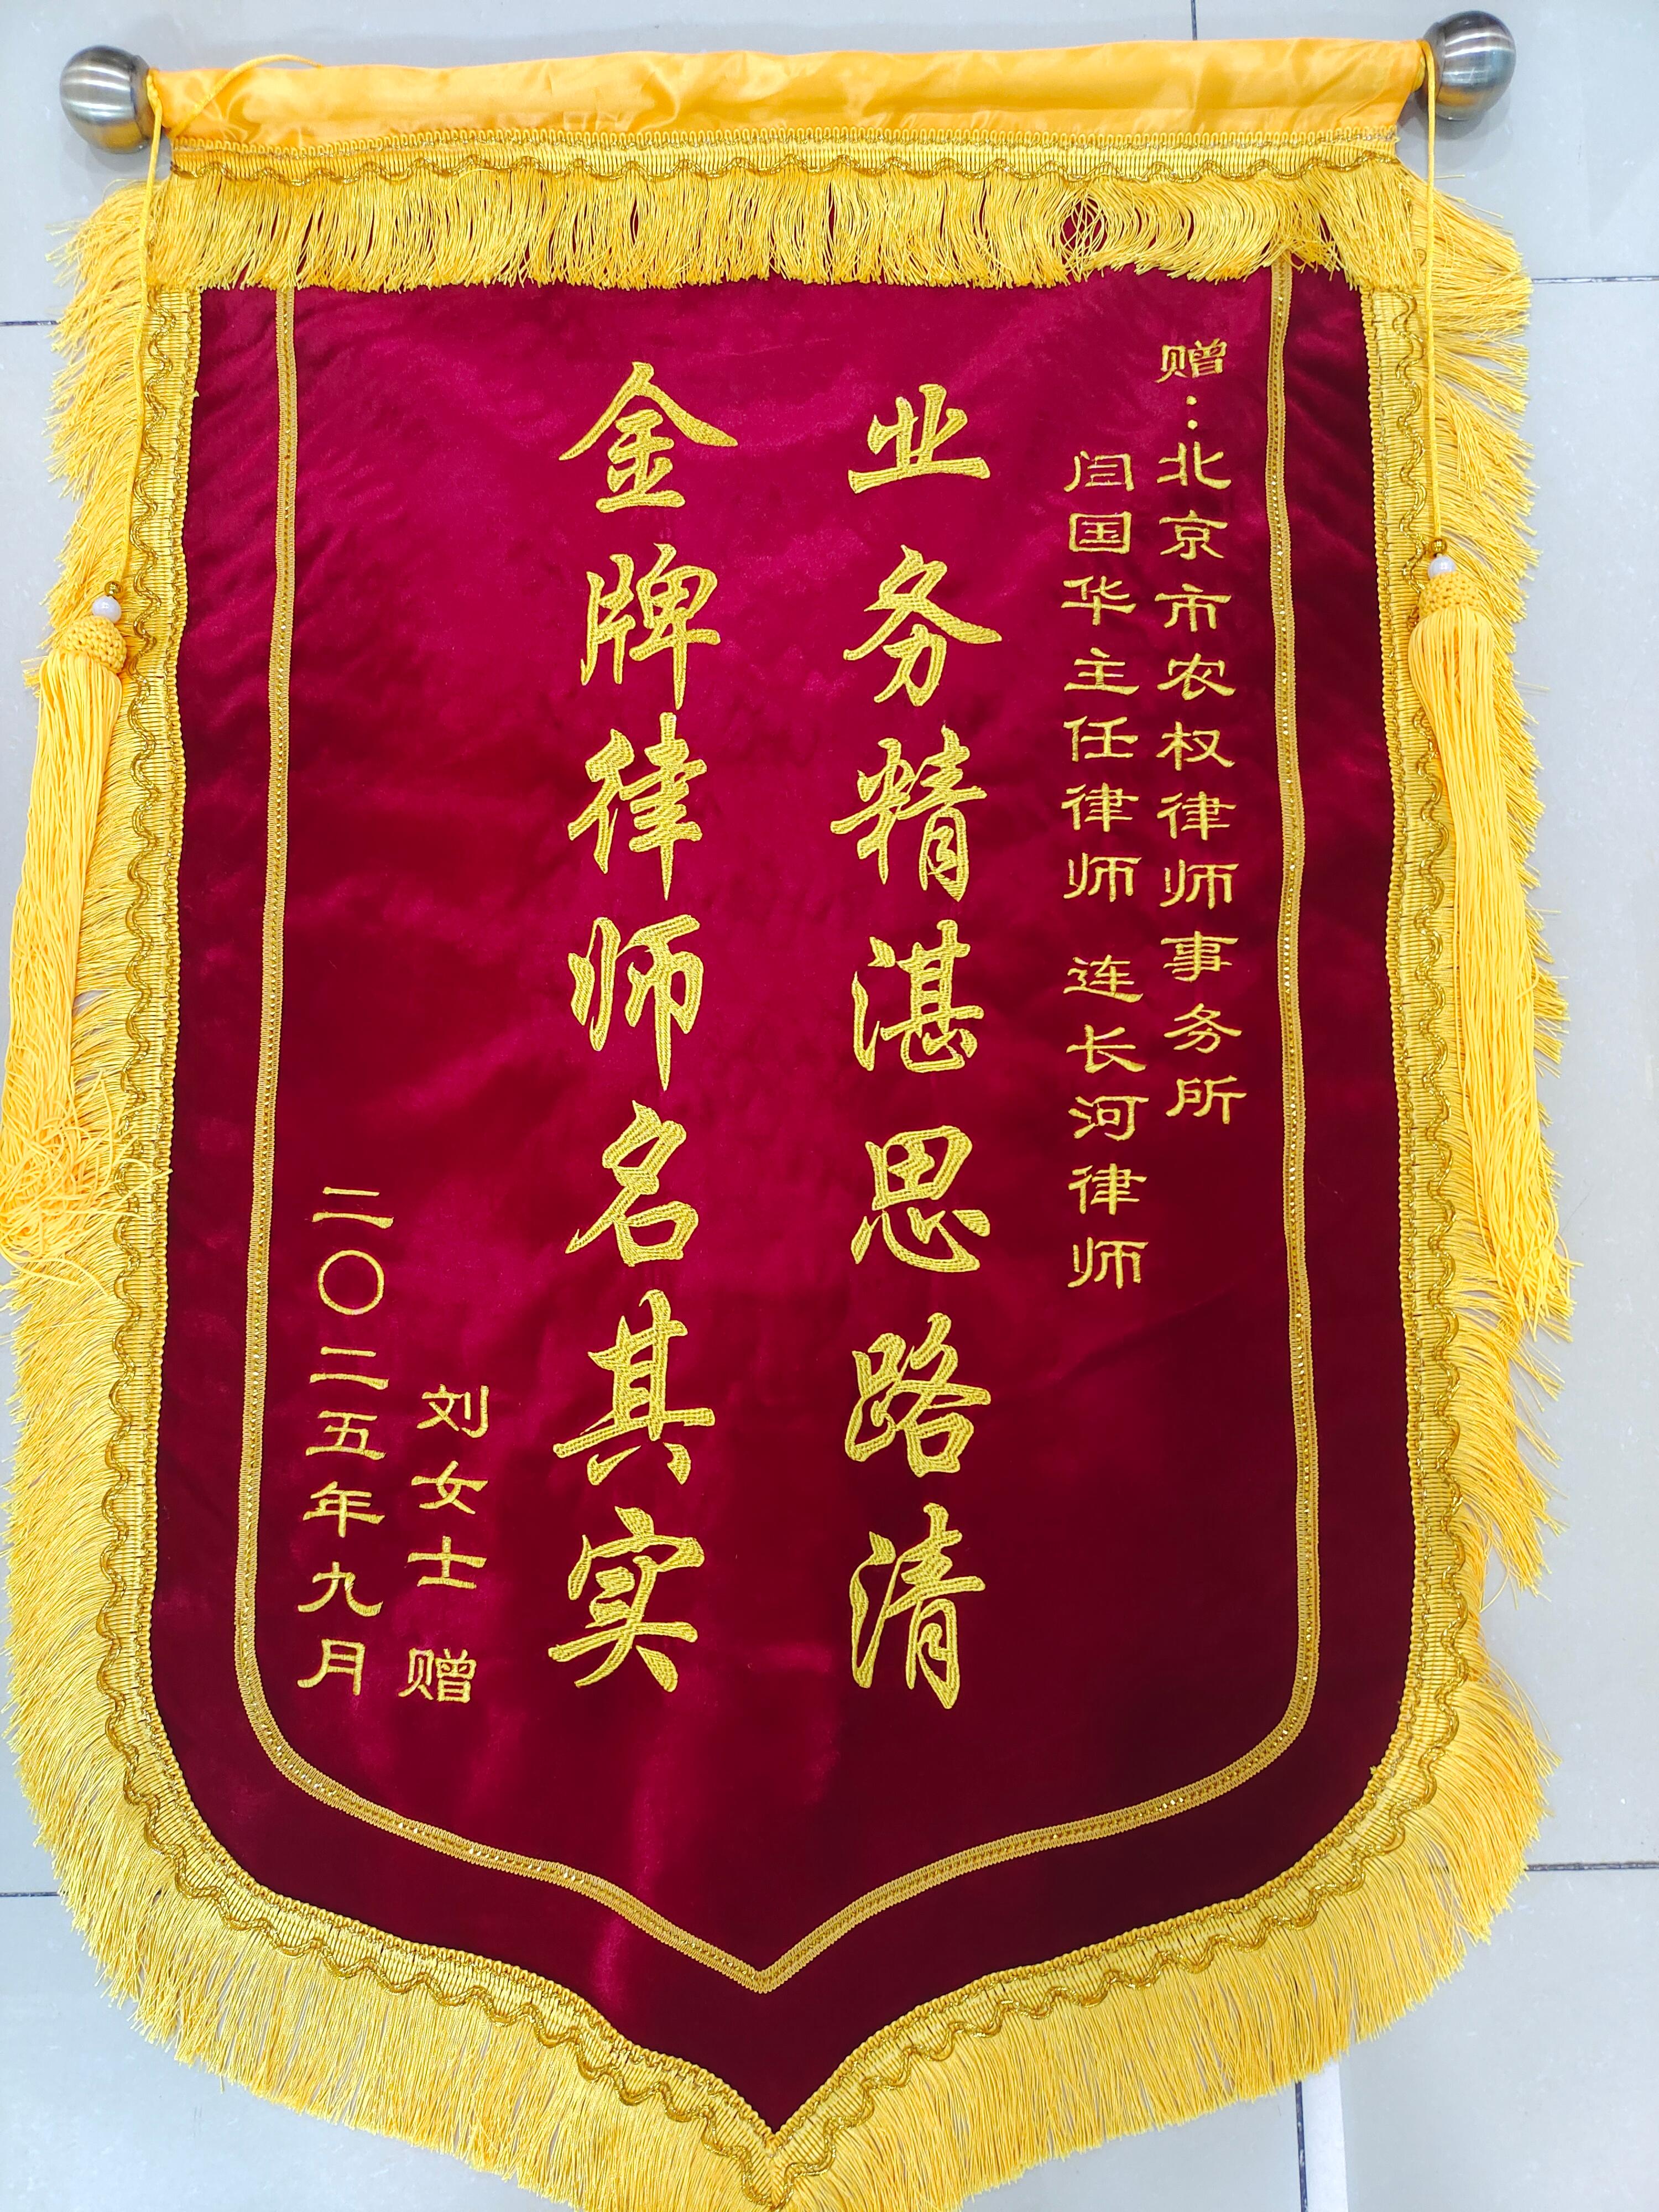 赠：北京市农权律师事务所
闫国华主任律师 连长河律师
业务精湛思路清
金牌律师名其实
刘女士 赠
二〇二五年九月